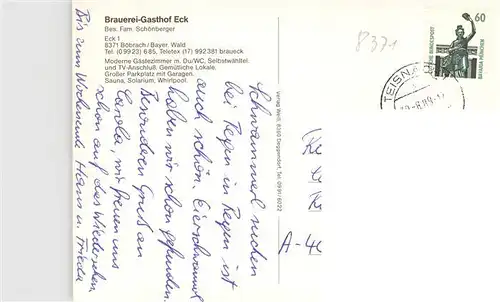 Brauerei-Gasthof Eck
Bes. Fam. Schönberger
Eck 1
8371 Böbrach/Bayer. Wald
Tel. (09923) 685, Teletex (17) 992381 braueck.
Moderne Gästezimmer m. Du/WC, Selbstwähltel.
und TV-Anschluß. Gemütliche Lokale.
Großer Parkplatz mit Garagen.
Sauna, Solarium, Whirlpool.
Schwammerl suchen
bei Regen in Regen ist
auch schön. Eierschwammerl
haben wir schon gefunden.
Besonderen Gruß an
Carola, wir freuen uns
schon auf das Wiedersehen,
Bis zum Wochenende Hans u. Frieda
Verlag Weiß, 8360 Deggendorf, Tel. 0991/6022
8371
60
DEUTSCHE BUNDESPOST
BAVARIA MÜNCHEN
TEISNA
A-40